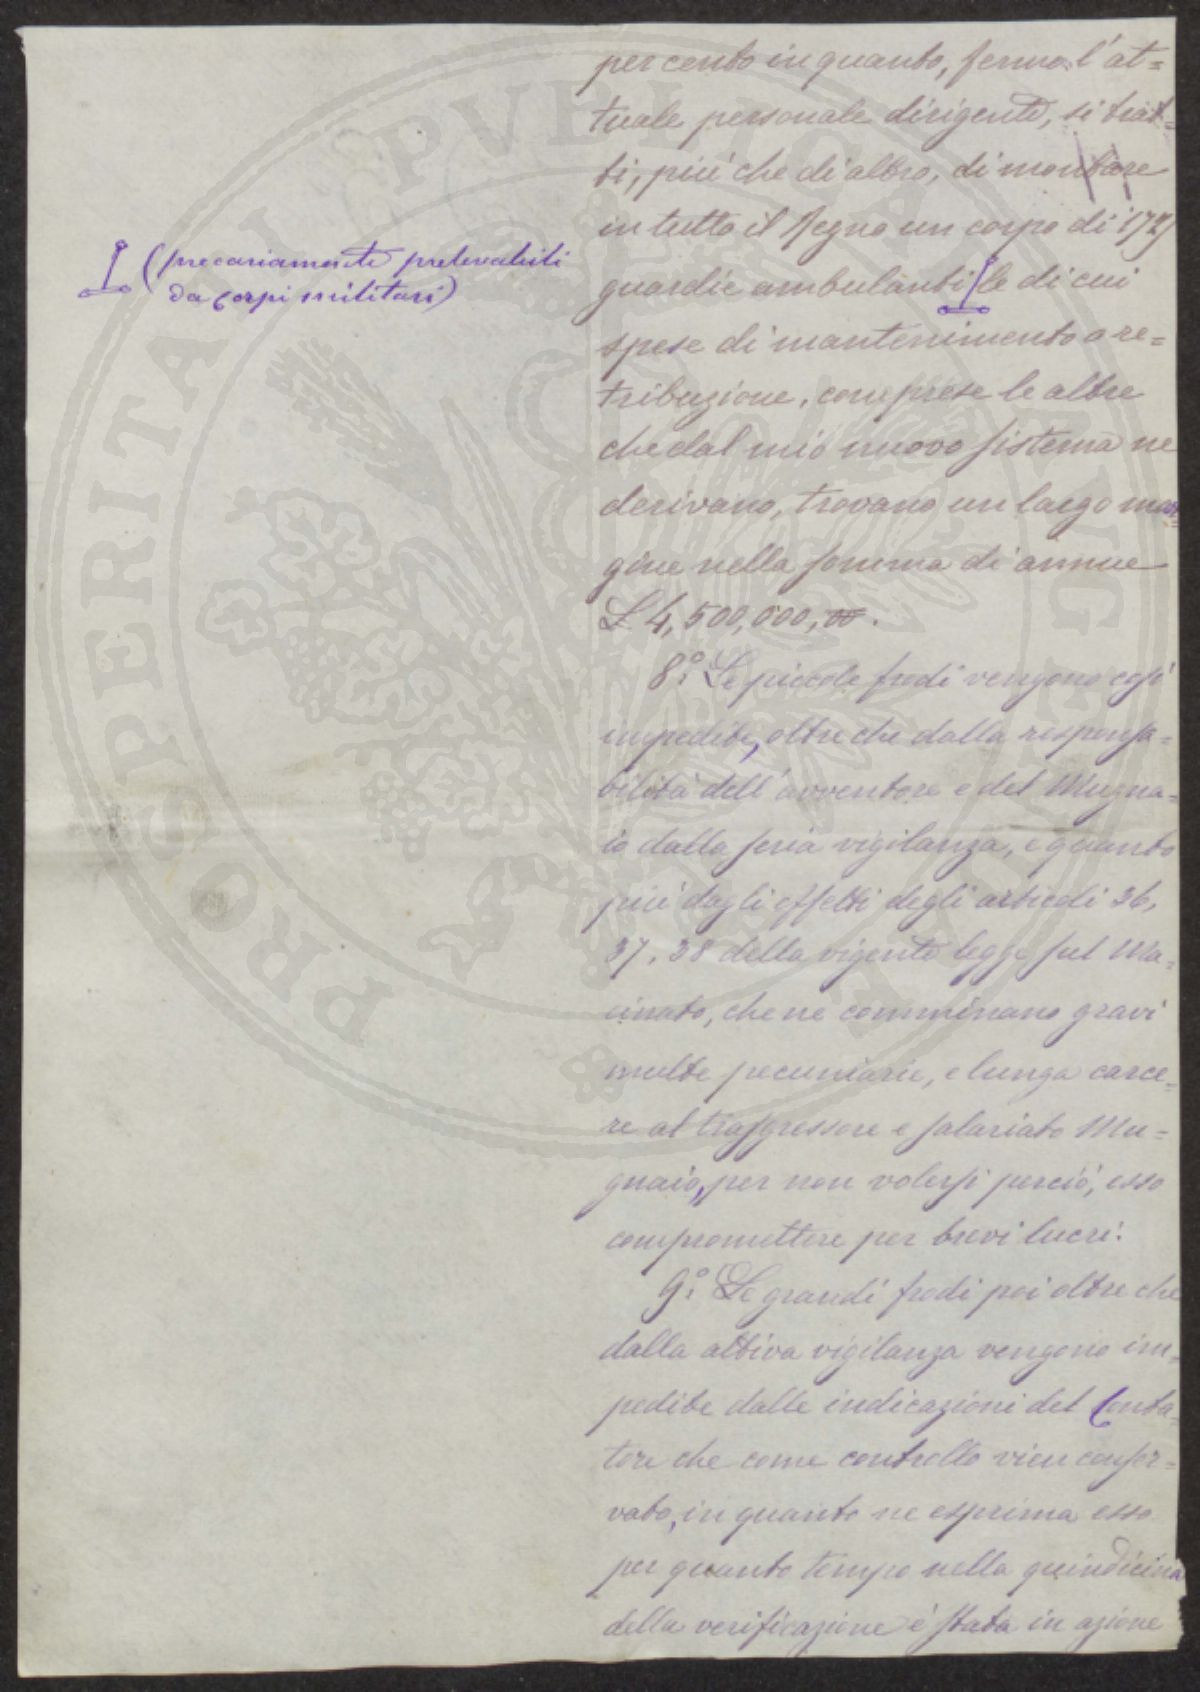 per cento in quanto, fermo l'at=
tuale personale dirigente, si trat=
ti, più che di altro, di montare
in tutto il Regno un corpo di
guardie ambulanti le di cui
(precariamente prelevabili
da corpi militari)
spese di mantenimento o re=
tribuzione, comprese le altre
che dal mio nuovo sistema ne
derivano, trovano un largo mar=
gine nella somma di annue
L 4,500,000,00.
8°. Le piccole frodi vengono così
impedite, oltre che dalla responsa=
bilità dell'avventore e del Mugna=
io dalla seria vigilanza, e quanto
più dagli effetti degli articoli 36,
37, 38 della vigente legge sul Ma=
cinato, che ne comminano gravi
multe pecuniarie, e lunga carce=
re al trasgressore e salariato Mu=
gnaio, per non volersi perciò, esso
compromettere per brevi lucri.
9°. Le grandi frodi poi oltre che
dalla attiva vigilanza vengono im=
pedite dalle indicazioni del Conta=
tore che come controllo vien conser=
vato, in quanto ne esprima esso
per quanto tempo nella quindicina
della verificazione è stata in azione
PROSPERITA PUBLICA